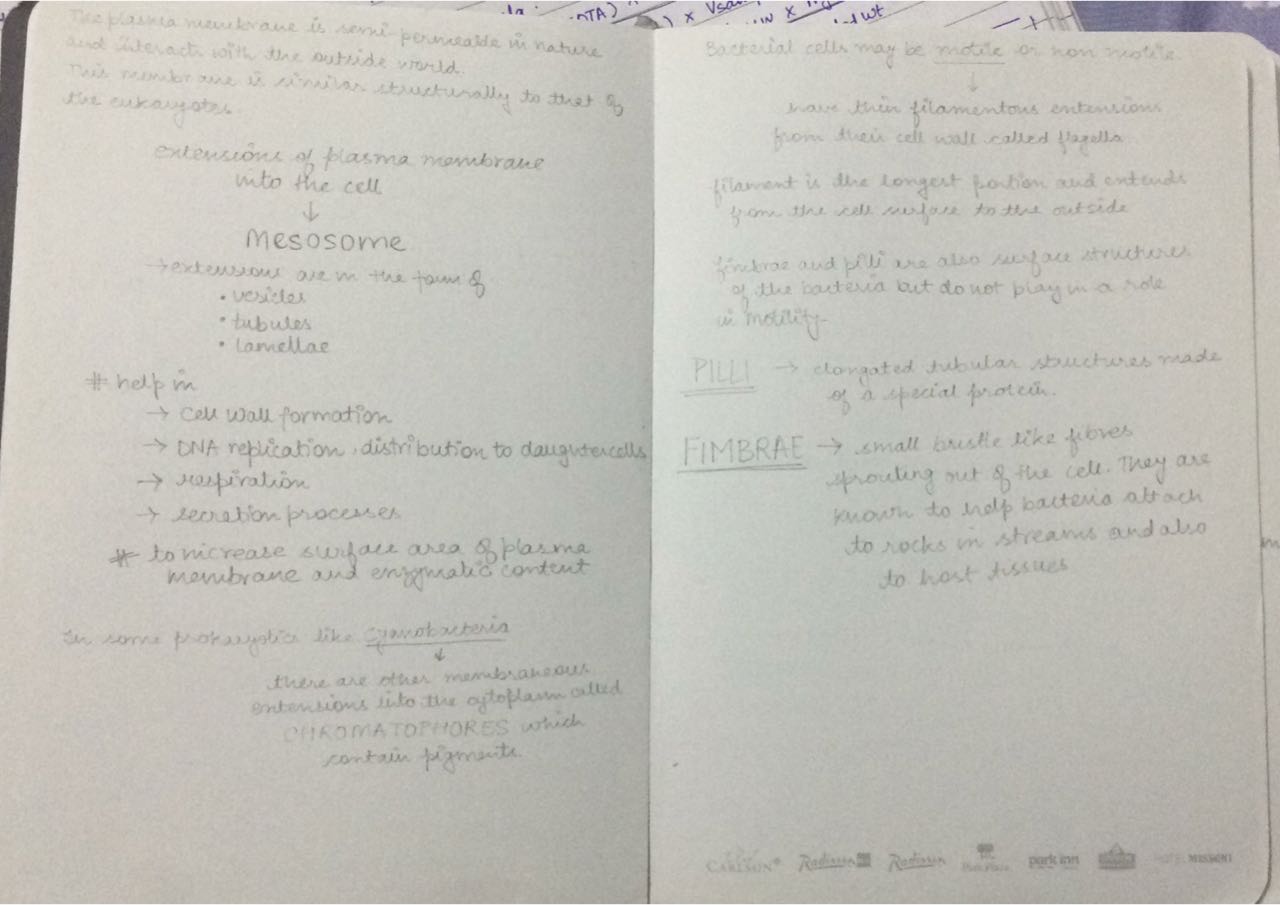 The plasma membrane is semi-permeable in nature
and interact with the outside world.
This membrane is similar structurally to that of
the eukaryotes.
extensions of plasma membrane
into the cell
↓
Mesosome
→ extensions are in the form of
• vesicles
• tubules
• lamellae
# help in
→ cell wall formation
→ DNA replication, distribution to daughter cells
→ respiration
→ secretion processes
# to increase surface area of plasma
membrane and enzymatic content
In some prokaryotics like Cyanobacteria
↓
there are other membraneous
extensions into the cytoplasm called
CHROMATOPHORES which
contain pigments.
Bacterial cells may be motile or non motile.
↓
have thin filamentous extensions
from their cell wall called flagella
filament is the longest portion and entends
from the cell surface to the outside
fimbrae and pili are also surface structures
of the bacteria but do not play in a role
in motility-
PILLI → elongated tubular structures made
of a special protein.
FIMBRAE → small bristle like fibres
sprouting out of the cell. They are
known to help bacteria attach
to rocks in streams and also
to host tissues
CARLSON Radisson BLU Radisson Park Plaza park inn HOTEL MISSONI